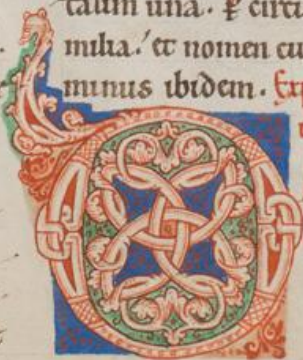 talium una. & circu
milia.' et nomen eu
minus ibidem. Exp